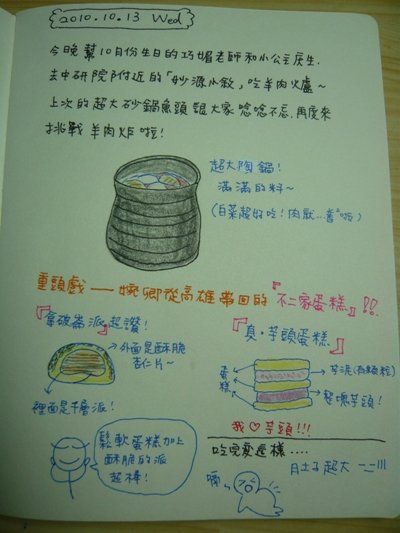 2010.10.13 Wed
今晚幫10月份生日的巧媚老師和小公主慶生.
去中研院附近的「妙源小敘」吃羊肉火爐~
上次的超大砂鍋魚頭讓大家念念不忘.再度來
挑戰羊肉炉啦!
超大陶鍋!
滿滿的料~
(白菜超好吃!肉厭…
重頭戲——婉卿從高雄帶回的『不二家蛋糕』!!
『拿破崙派』超讚!
外面是酥脆
杏仁片~
裡面是千層派!
『真·芋頭蛋糕』
蛋糕
芋泥(有顆粒)
整塊芋頭!
我♡芋頭!!!
鬆軟蛋糕加上
酥脆的派
超棒!
吃完變這樣....
肚子超大
嗝